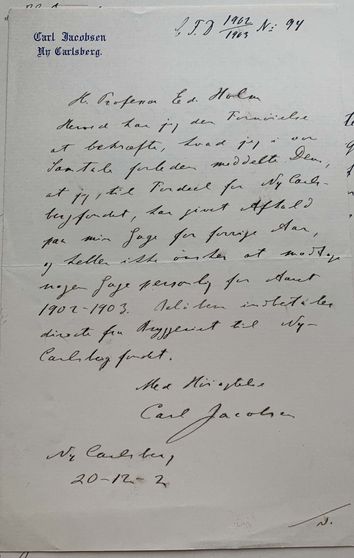 Carl Jacobsen
Ny Carlsberg.
J. D. 1902/1903 No: 94
Hr. Professor Ed. Holm
Herved har jeg den Fornøielse
at bekræfte, hvad jeg i vor
Samtale forleden meddelte Dem,
at jeg, til Fordeel for Ny Carls-
bergfondet, har givet Afkald
paa min Gage for forrige Aar,
og heller ikke ønsker at modtage
nogen Gage personlig for Aaret
1902-1903. indbetales
directe fra Bryggeriet til Ny-
Carlsbergfondet.
Med Høiagtelse
Carl Jacobsen
Ny Carlsberg
20-12-2